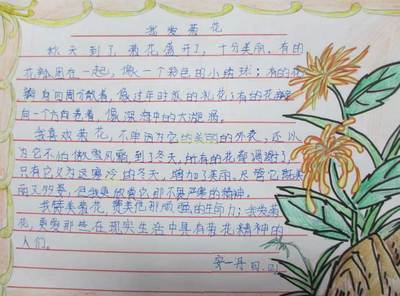 我爱菊花
秋天到了，菊花盛开了，十分美丽。有的
花瓣团在一起，像一个彩色的小绣球；有的花
瓣自向周介散着，像过年时放的礼花；有的花瓣
向一个方向卷着，像深海中的大漩涡。
我喜欢菊花，不单因为它的美丽的外表，还以
为它不怕傲雪风霜，到了冬天，所有的花都凋谢了，
只有它又为这寒冷的冬天，增加了美丽。尽管它既美
丽又多姿，但我更欣赏它那不畏严寒的精神。
我赞美菊花，赞美他那顽强的生命力；我爱菊
花，更爱那些在现实生活中具有菊花精神的
人们。
安一丹